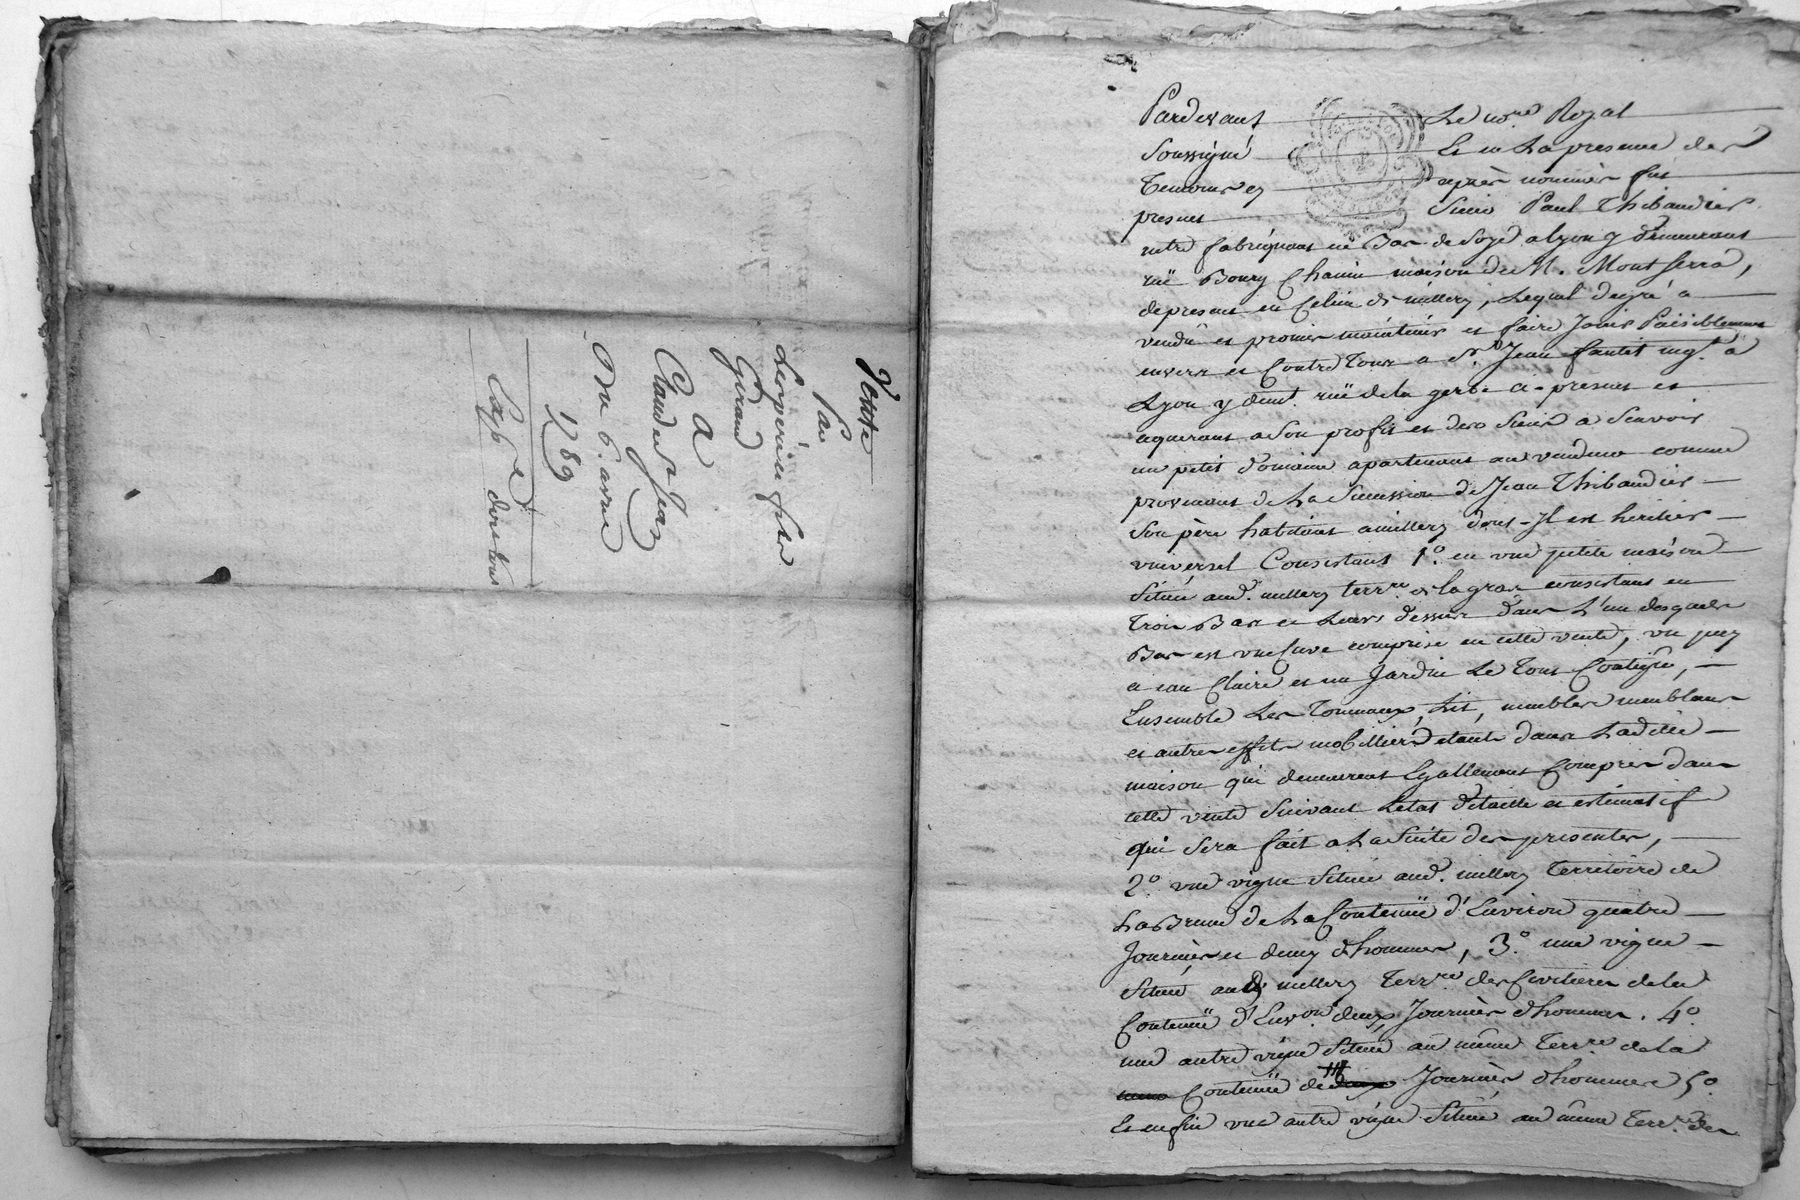 Vente
Par
Lesperieu fils
Giraud
A
Claude St Jean
Du 6. avril
1789
Exp ée
Pardevant Le no.re Royal
Soussigné Et en La presence des
Temoins cy après nommés fut
present Sieur Paul Thibaudier
mtre fabriquant en Bas de Soye a Lyon y demeurant
rüe Bourg Chanin maison de M. Montferra,
depresent en Celieu de millery, Lequel degré a
vendû et promis maintenir et faire Jouir Paisiblement
envers et Contre Tous a Sr. Jean fantet mg.t a
Lyon y demt. rüe de la gerbe a-present et
aquerant a Son profit et des Siens a Scavoir
un petit domaine apartenant au vendeur comme
provenant de La Succession de Jean Thibaudier
Son père habitant a millery dont Il est héritier
universel Consistant 1.° en une petite maison
Située aud. millery terr.re de la gras consistant en
Trois Bas et Leurs dessus dans L'un desquels
Bas est une Cuve comprise en cette vente, un puy
a eau Claire et un Jardin Le Tout Contigû,
Ensemble Les Tonneaux, Lit, meubles meublans
et autres effets mobilliers etants dans Laditte
maison qui demeurent Egallement Compris dans
cette vente Suivant Letat détaillé et estimatif
qui Sera fait a La Suite des presentes,
2.° une vigne Située aud. millery Territoire de
La Brune de La Contenüe d'Environ quatre
Journées et demy d'hommes, 3.° une vigne
Située aud. millery Terr.re des Civilieres de la
Contenüe d'Environ deux Journées d'hommes. 4.°
une autre vigne Située au même Terr.re de la
Contenüe de Journées d'hommes 5.°
Et enfin une autre vigne Située au même Terr.re des